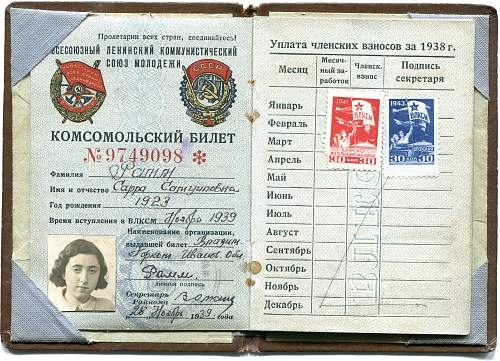 Пролетарии всех стран, соединяйтесь!
ВСЕСОЮЗНЫЙ ЛЕНИНСКИЙ КОММУНИСТИЧЕСКИЙ
СОЮЗ МОЛОДЕЖИ
СССР
КОМСОМОЛЬСКИЙ БИЛЕТ
№ 9749098 *
Фамилия
Имя и отчество Сарра
Год рождения 1923
Время вступления в ВЛКСМ Ноябрь 1939
Наименование организации,
выдавшей билет Владим.
Горком Иванов. Обл
личная подпись
Секретарь
Райкома
„26" Ноябрь 1939 года
Уплата членских взносов за 1938 г.
Месяц
Месячный заработок
Членск. взнос
Подпись секретаря
Январь
Февраль
Март
Апрель
Май
Июнь
Июль
Август
Сентябрь
Октябрь
Ноябрь
Декабрь
1941
ВЛКСМ
КОП
1943
ВЛКСМ
30 КОП 30